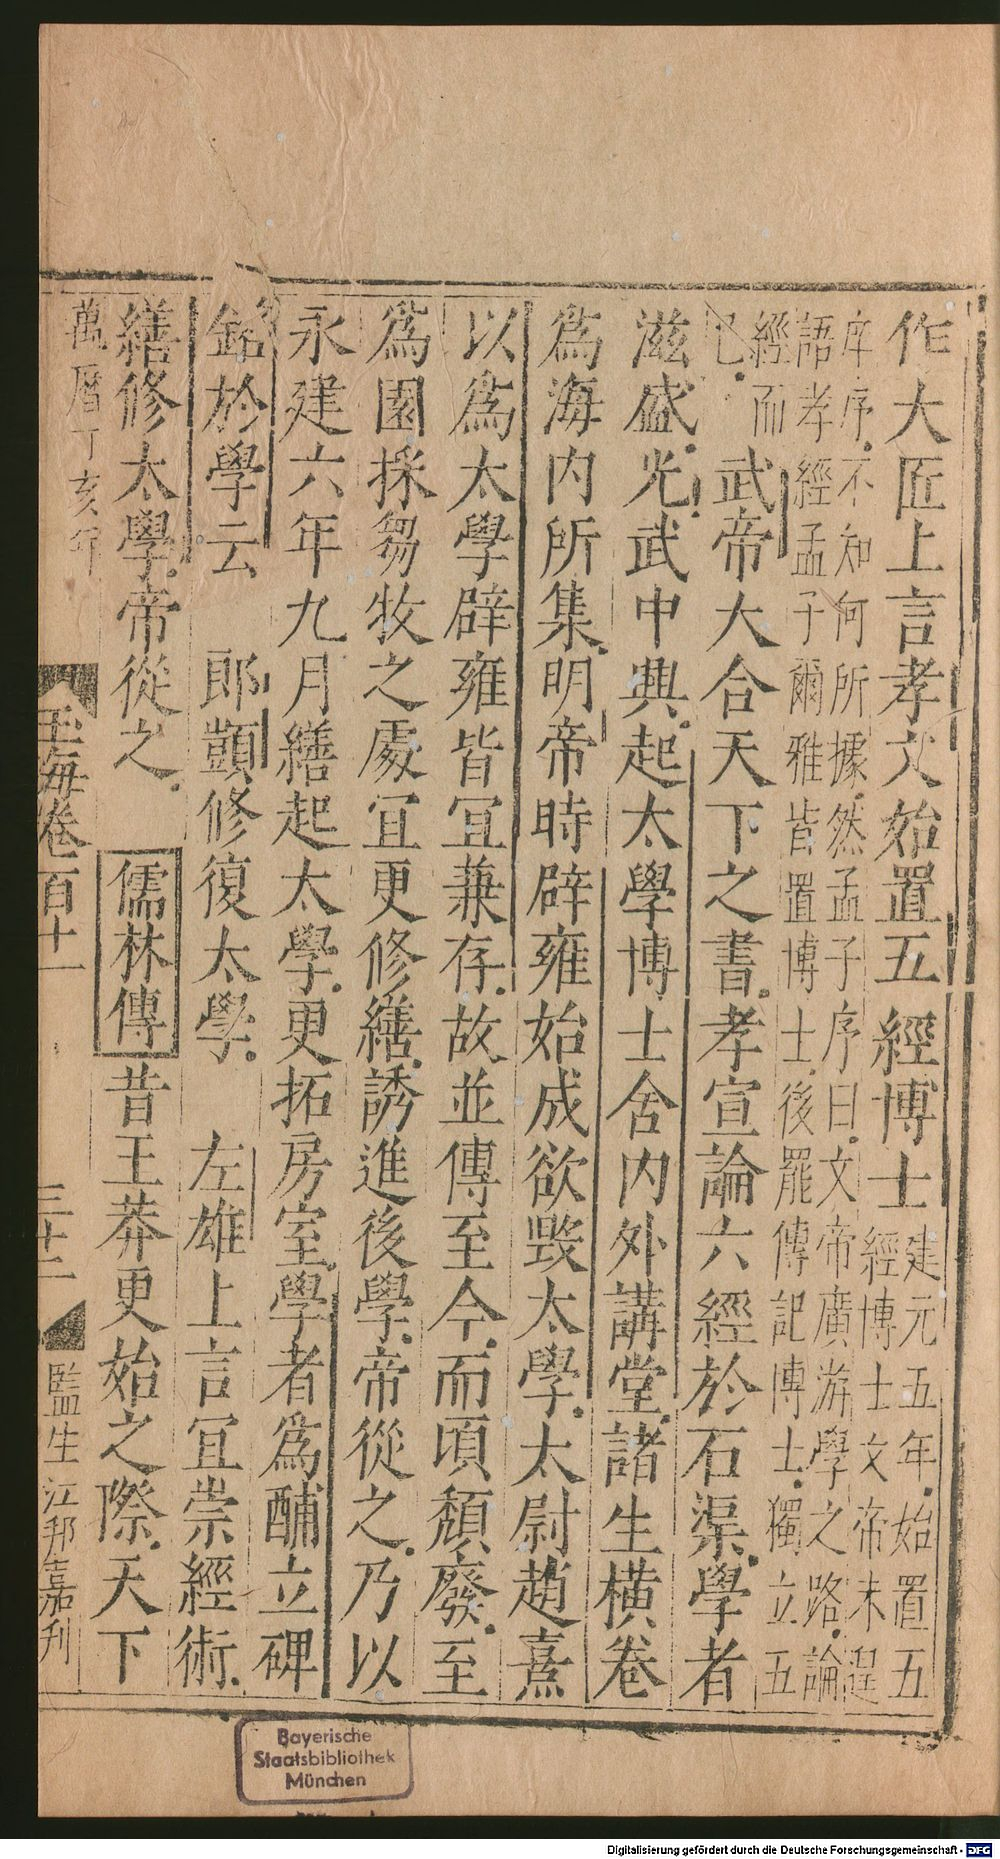 作大匠上言孝文始置五經博士建元五年始置五
經博士文帝未遑
庠序不知何所據然孟子序曰文帝廣游學之路論
語孝經孟子爾雅皆置博士後罷傳記博士獨立五
經而
已武帝大合天下之書孝宣論六經於石渠學者
滋盛光武中興起太學博士舍內外講堂諸生橫卷
爲海內所集明帝時辟雍始成欲毀太學太尉趙熹
以爲太學辟雍皆宜兼存故並傳至今而頃頹廢至
爲園採芻牧之處宜更修繕誘進後學帝從之乃以
永建六年九月繕起太學更拓房室學者爲酺立碑
銘於學云 郎顗修復太學 左雄上言宜崇經術
繕修太學帝從之 儒林傳昔王莽更始之際天下
萬曆丁亥年
玉海卷百十一
三十二
監生江邦嘉刋
Bayerische
Staatsbibliothek
München
Digitalisierung gefördert durch die Deutsche Forschungsgemeinschaft - DFG